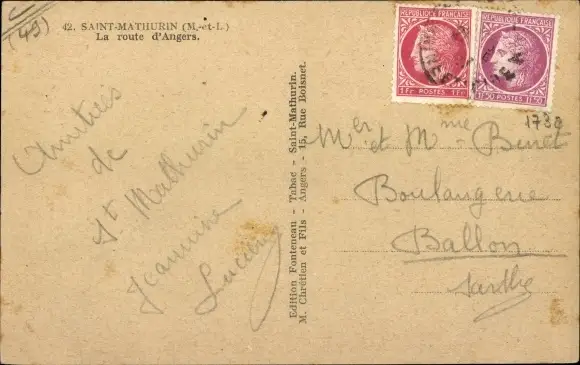 (49)
42. SAINT-MATHURIN (M.-et-L.)
La route d'Angers.
RÉPUBLIQUE FRANÇAISE
1 Fr POSTES 1 Fr
RÉPUBLIQUE FRANÇAISE
1f50 POSTES 1f50
1730
Amitiés
de
St Mathurin
Jeannine
Lucienne
Edition Fonteneau - Tabac - Saint-Mathurin.
M. Chrétien et Fils - Angers - 15, Rue Boisnet.
Mer et Mme Binet
Boulangerie
Ballon
Sarthe